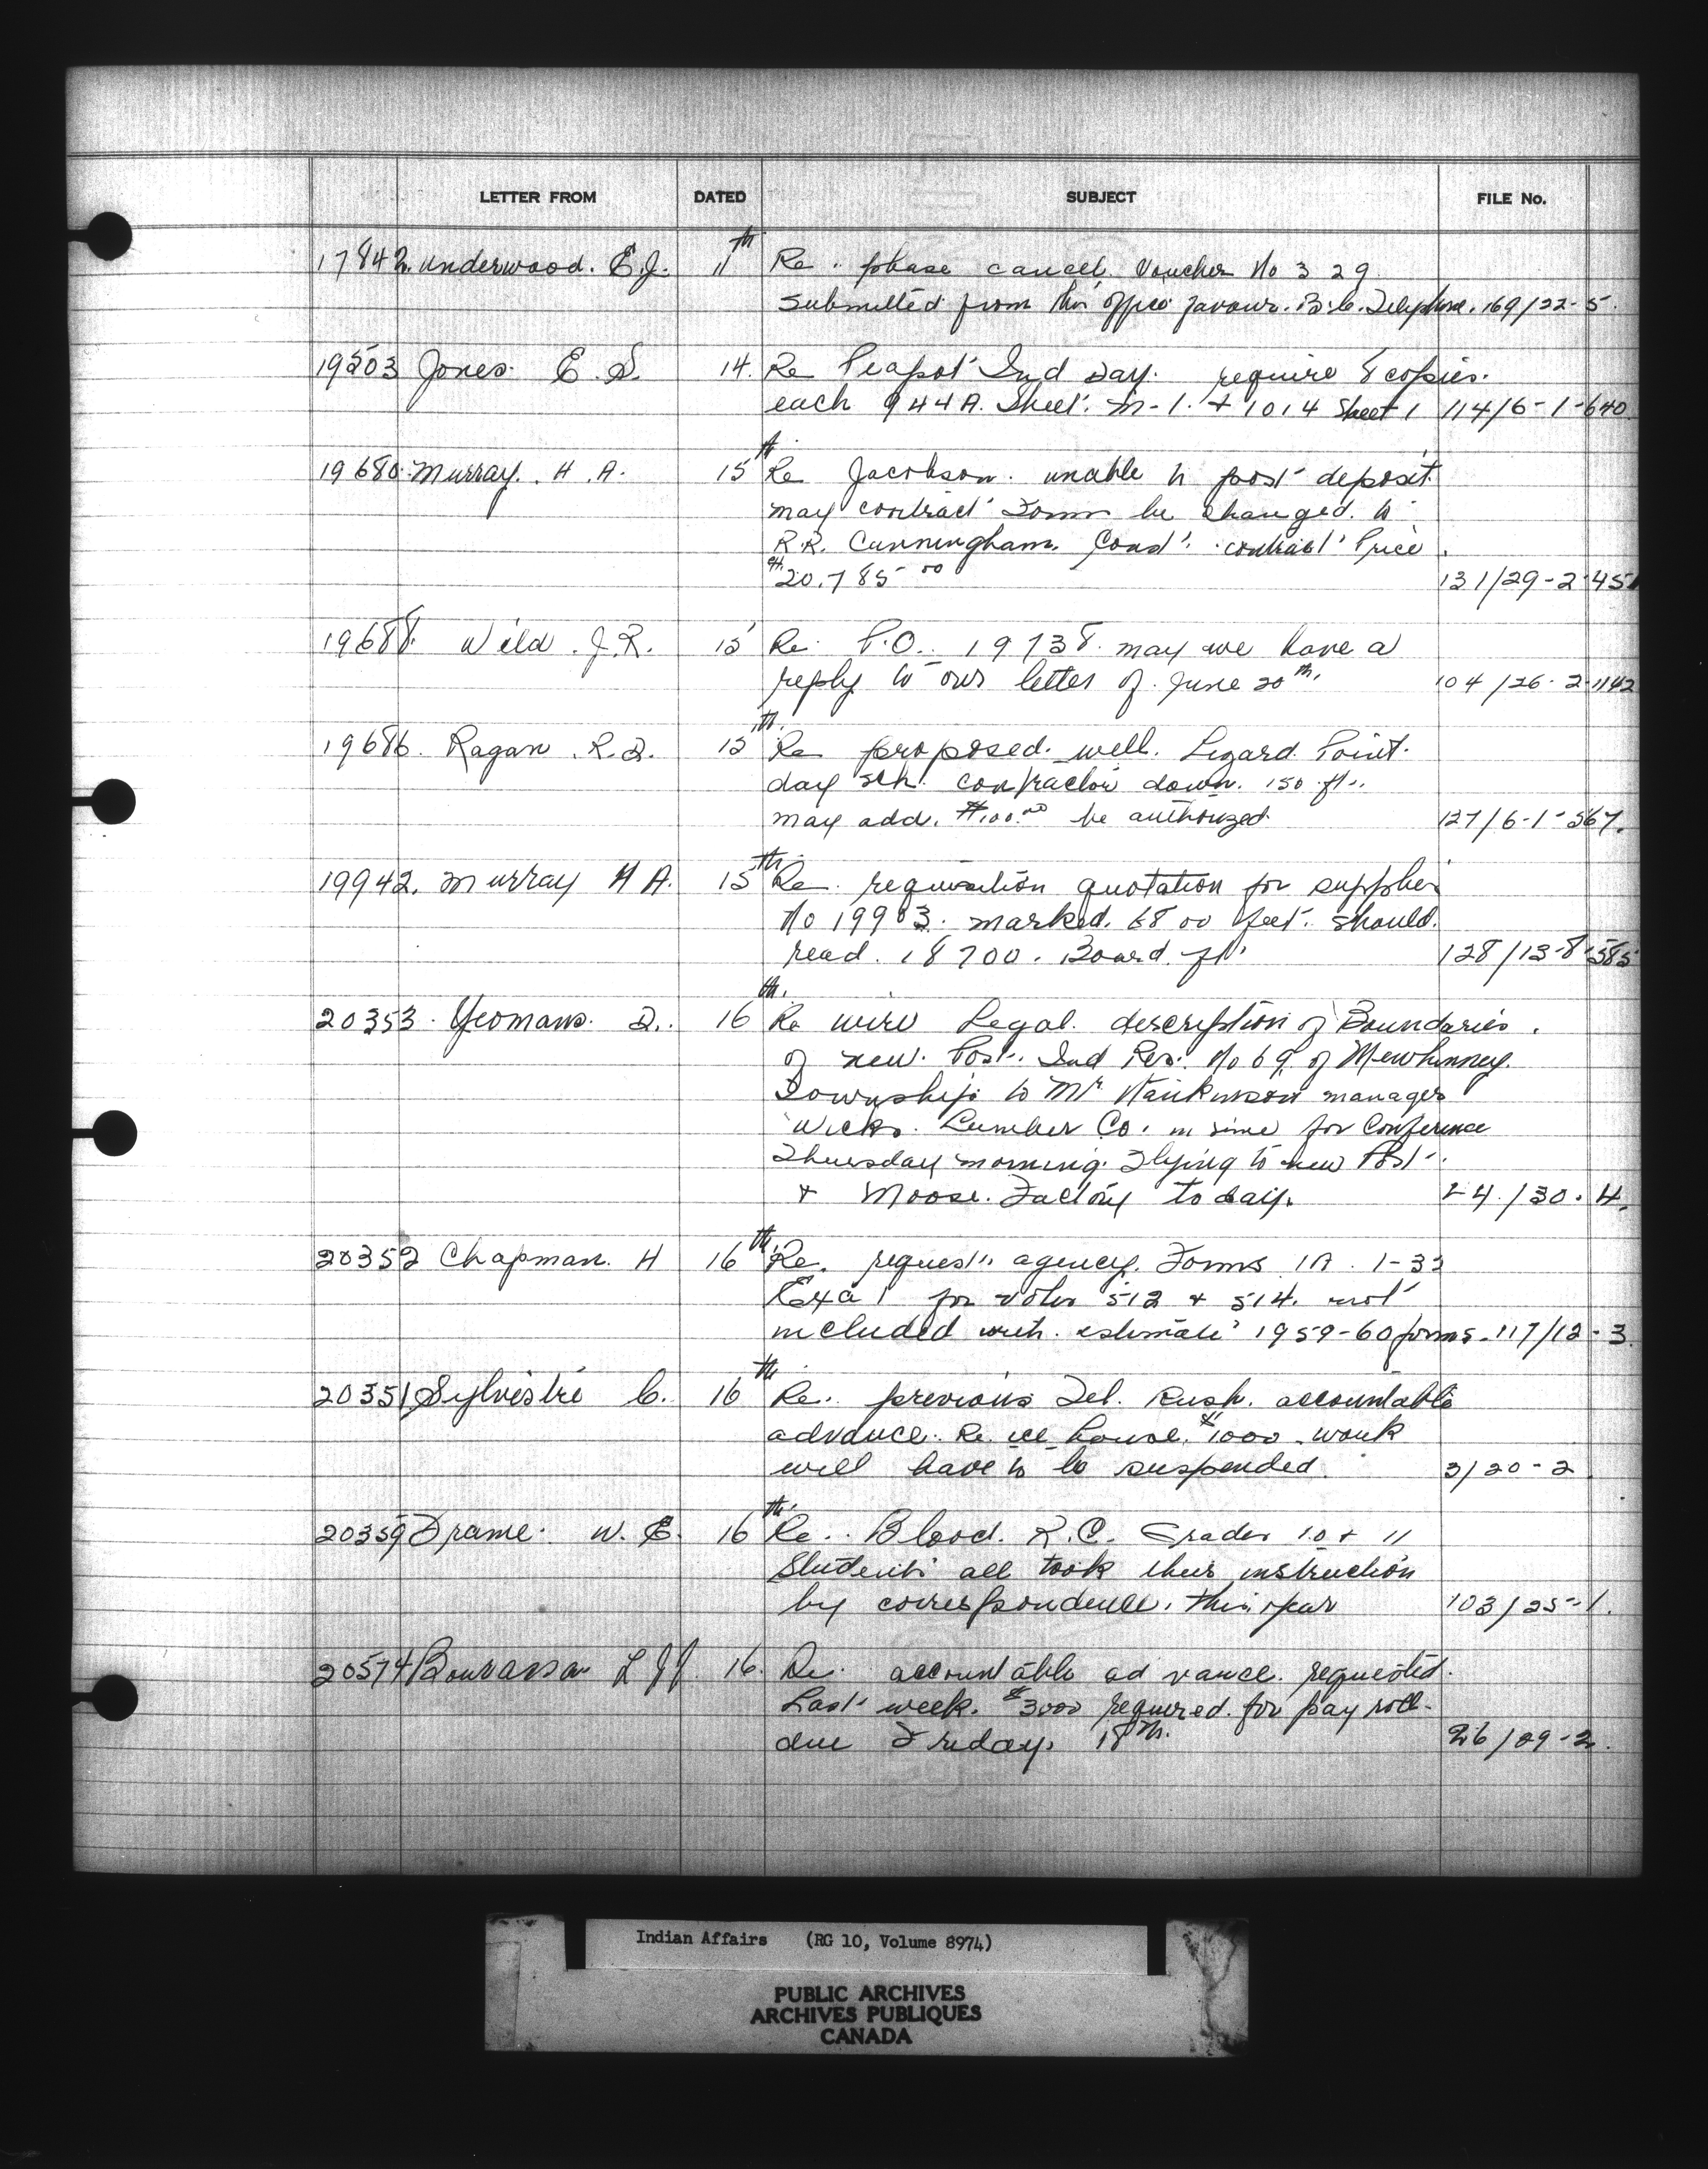 LETTER FROM DATED SUBJECT FILE No.
17842 Underwood. E.J. 11th Re. please cancel. Voucher No 329
submitted from this office favour. B.C. Telephone. 169/22-5.
19503 Jones. E.S. 14. Re Peapot Ind Day. require 8 copies.
each 944A. Sheet. M-1. + 1014 Sheet 1 114/6-1-640
19680. Murray. H.A. 15th Re Jacobson. unable to post deposit
may contract Form be changed. to
R.R. Cunningham. Const. contract Price.
$20,785 00 131/29-2-451
19688. Wild. J.R. 15 Re. P.O. 19738. may we have a
reply to our letter of. June 20th. 104/26-2-1142
19686. Ragan. R.D. 15th. Re proposed. well. Lizard Point.
day sch. contractor down. 150 ft.
may add. $100.00 be authorized. 127/6-1-567.
19942. Murray H A. 15th. Re. requisition quotation for supplies
No 19903. marked. 6800 feet. should.
read. 18700. Board. ft. 128/13-8-585
20353. Yeomans. D. 16th. Re wire Legal. description of Boundaries.
of new. Post. Ind Res. No 69. of Mewhinney.
Township. to Mr. Hankinson manager
Wicks. Lumber Co. in time for Conference
Thursday morning. Flying to new Post.
+ Moose. Factory today. 24/30.4.
20352 Chapman. H 16th. Re. request. agency. Forms IA 1-33
Exa 1 for votes 512 + 514. not
included with. estimate 1959-60 forms. 117/12-3.
20351 Sylvestre C. 16th Re. previous Tel. Rush. accountable
advance. Re. ice house. $1000. work
will have to be suspended. 3/20-2
20359 Frame. W. E. 16th. Re.. Blood. R.C. Grades 10 + 11
Students all took their instruction
by correspondence. this year 103/25-1.
20574 Bourassa L J J 16. Re. accountable advance. requested.
Last week. $3000 required. for pay roll.
due Friday. 18th. 26/29-2.
Indian Affairs (RG 10, Volume 8974)
PUBLIC ARCHIVES
ARCHIVES PUBLIQUES
CANADA